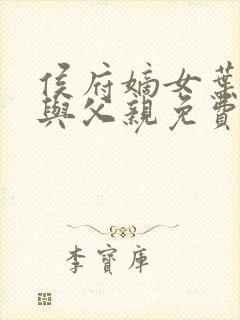 侯府嫡女葉
與父親免費
李寶庫